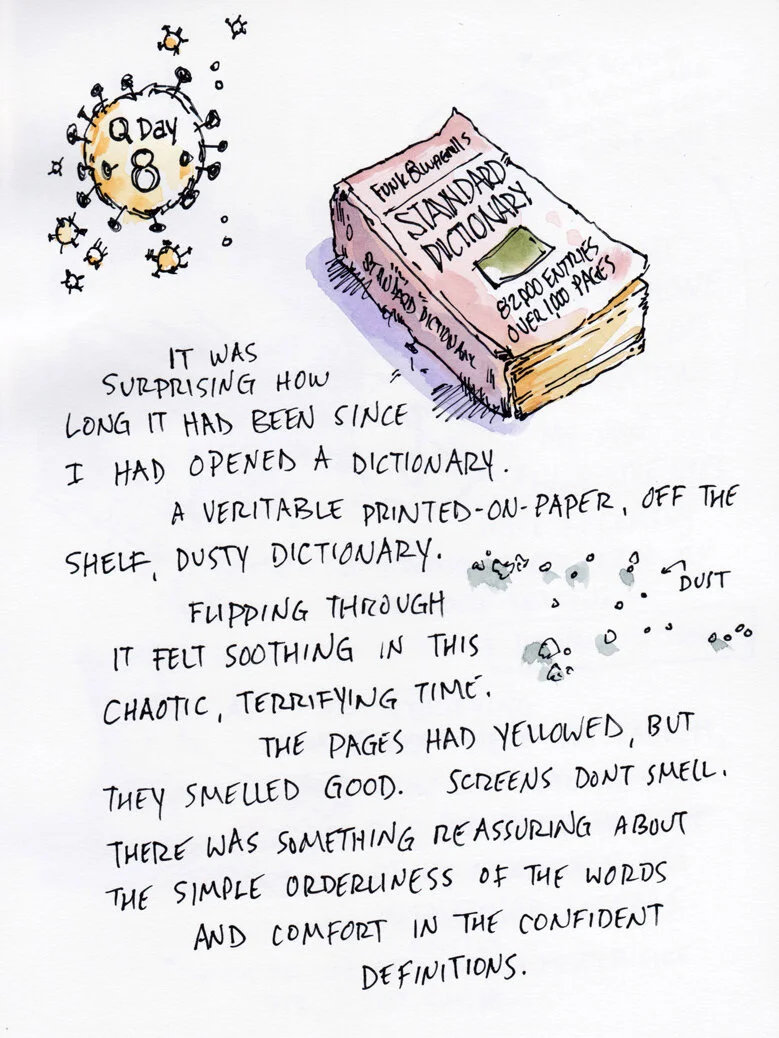 Q Day
8
Funk & Wagnalls
STANDARD
DICTIONARY
82,000 ENTRIES
OVER 1,000 PAGES
STANDARD DICTIONARY
IT WAS
SURPRISING HOW
LONG IT HAD BEEN SINCE
I HAD OPENED A DICTIONARY.
A VERITABLE PRINTED-ON-PAPER, OFF THE
SHELF, DUSTY DICTIONARY.
DUST
FLIPPING THROUGH
IT FELT SOOTHING IN THIS
CHAOTIC, TERRIFYING TIME.
THE PAGES HAD YELLOWED, BUT
THEY SMELLED GOOD. SCREENS DONT SMELL.
THERE WAS SOMETHING REASSURING ABOUT
THE SIMPLE ORDERLINESS OF THE WORDS
AND COMFORT IN THE CONFIDENT
DEFINITIONS.